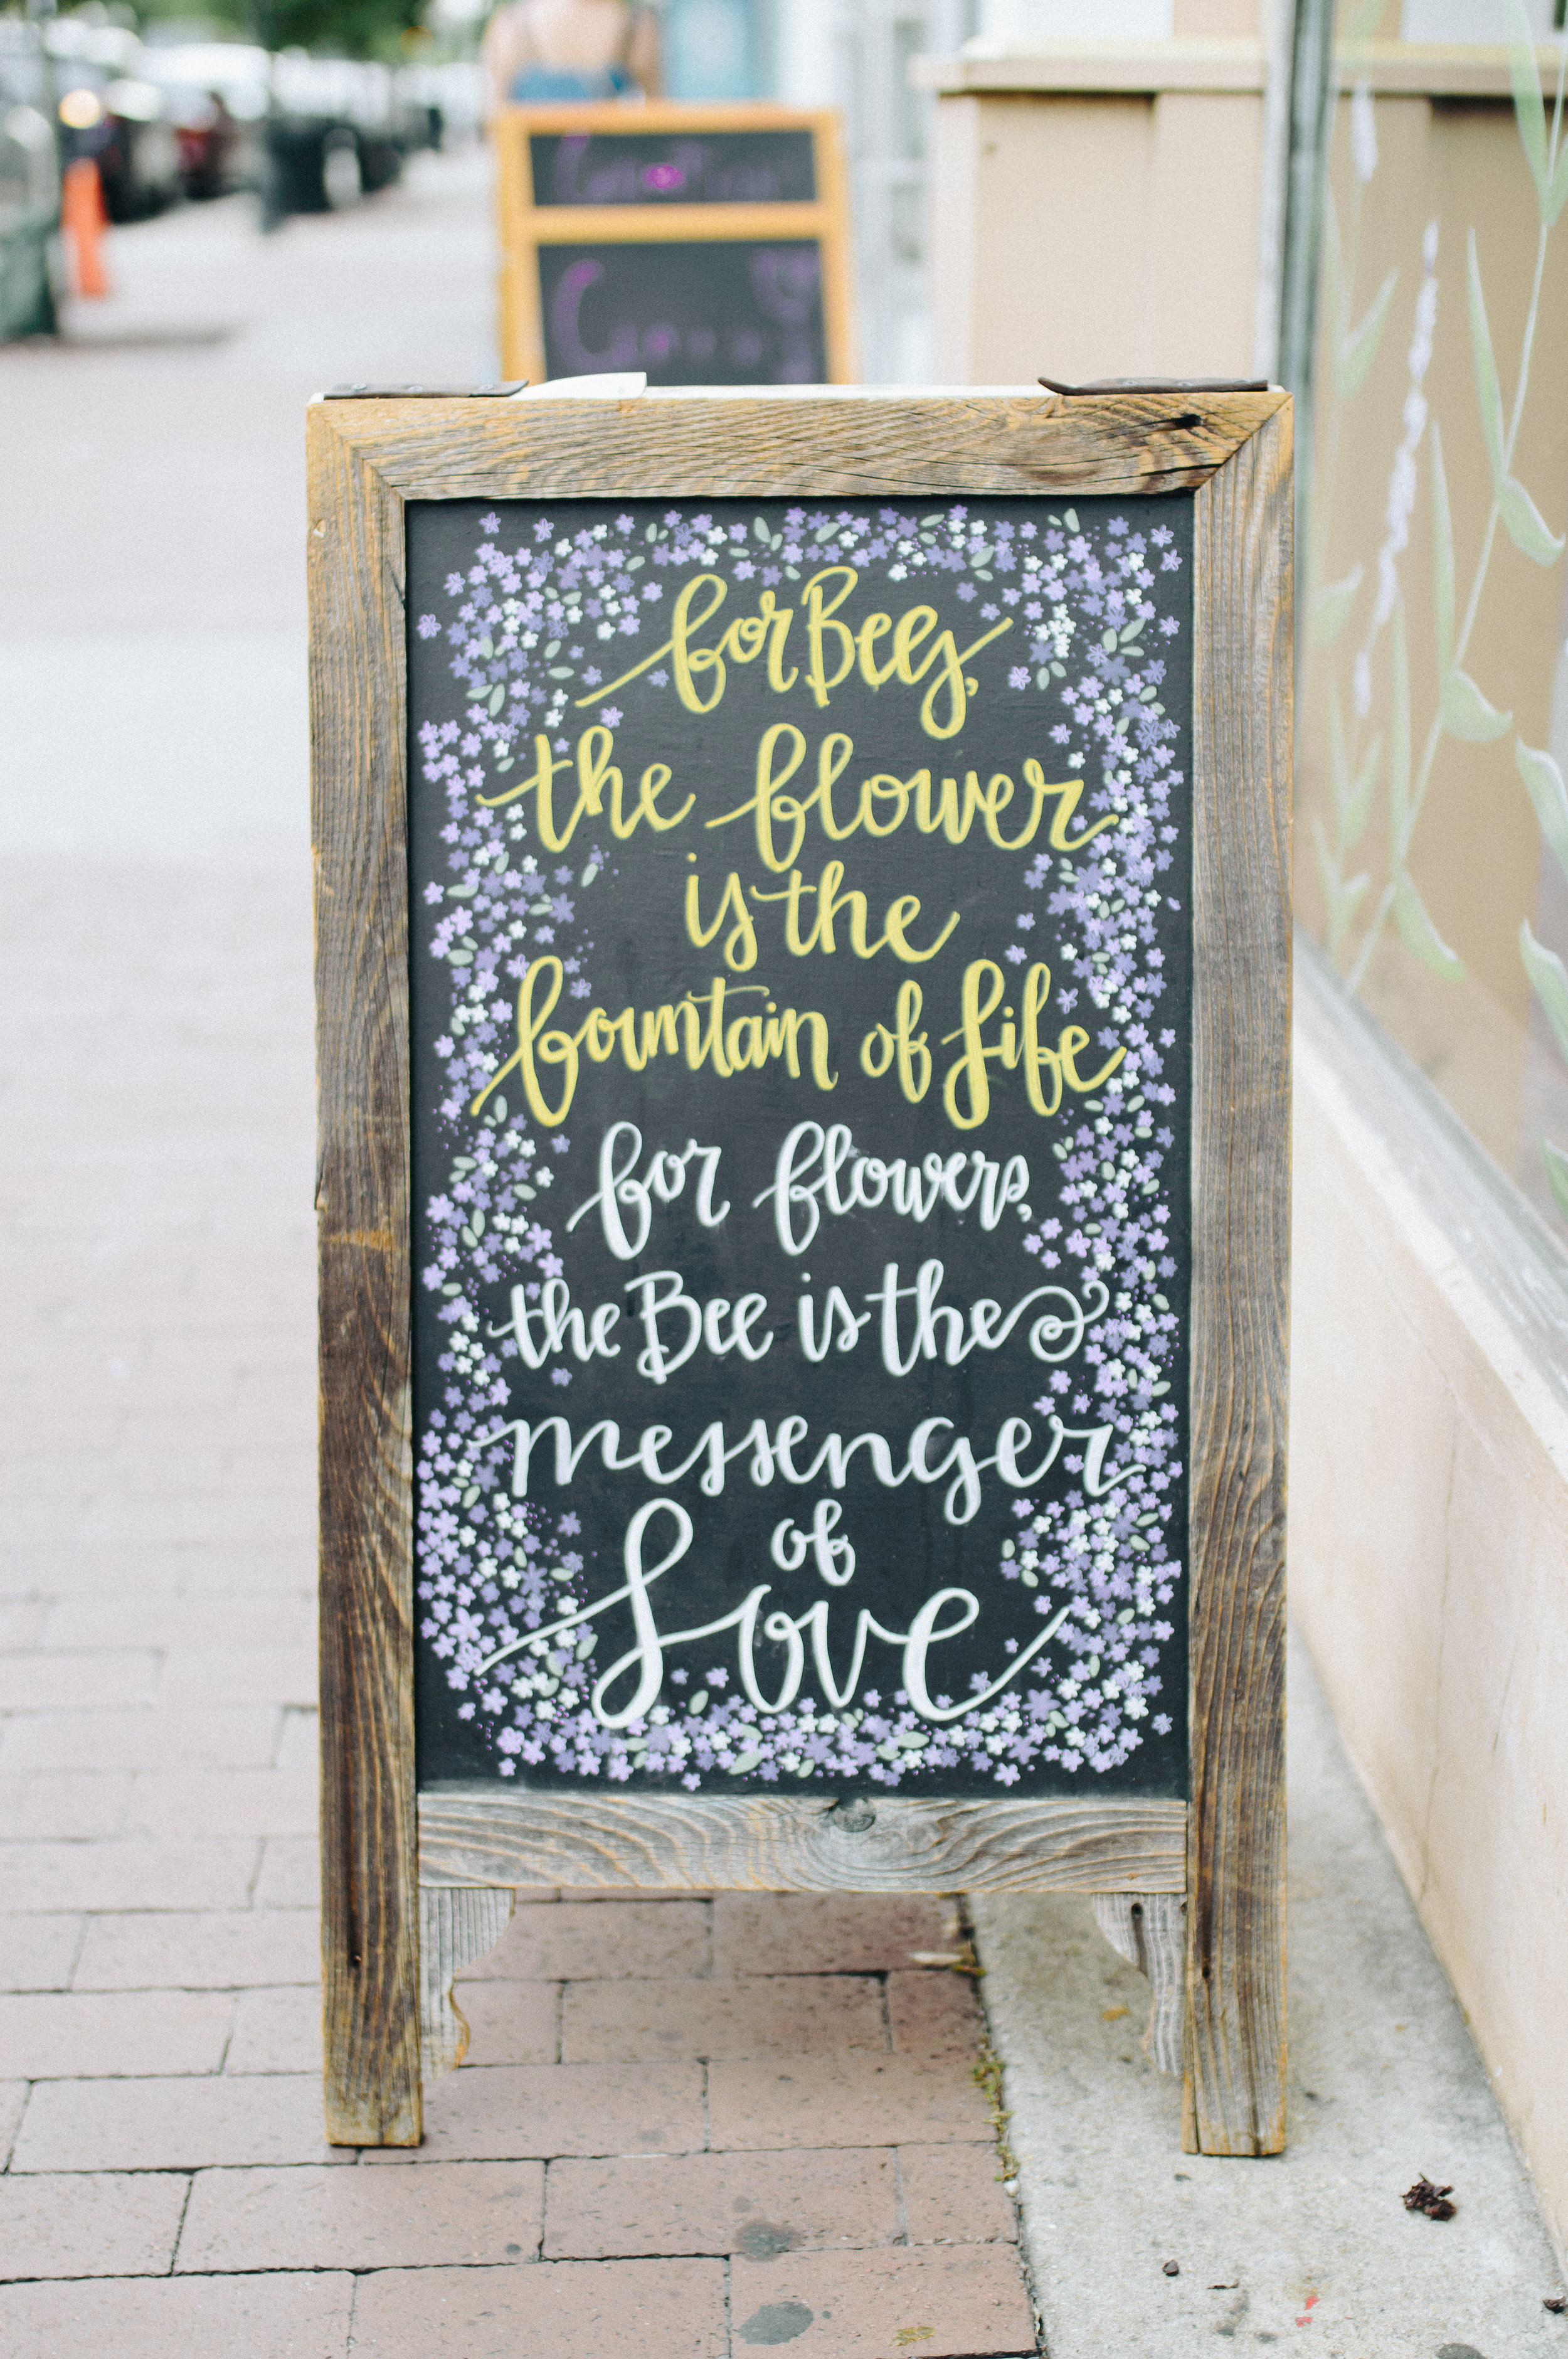 for Bees,
the flower
is the
fountain of Life
for flowers,
the Bee is the
messenger
of
Love